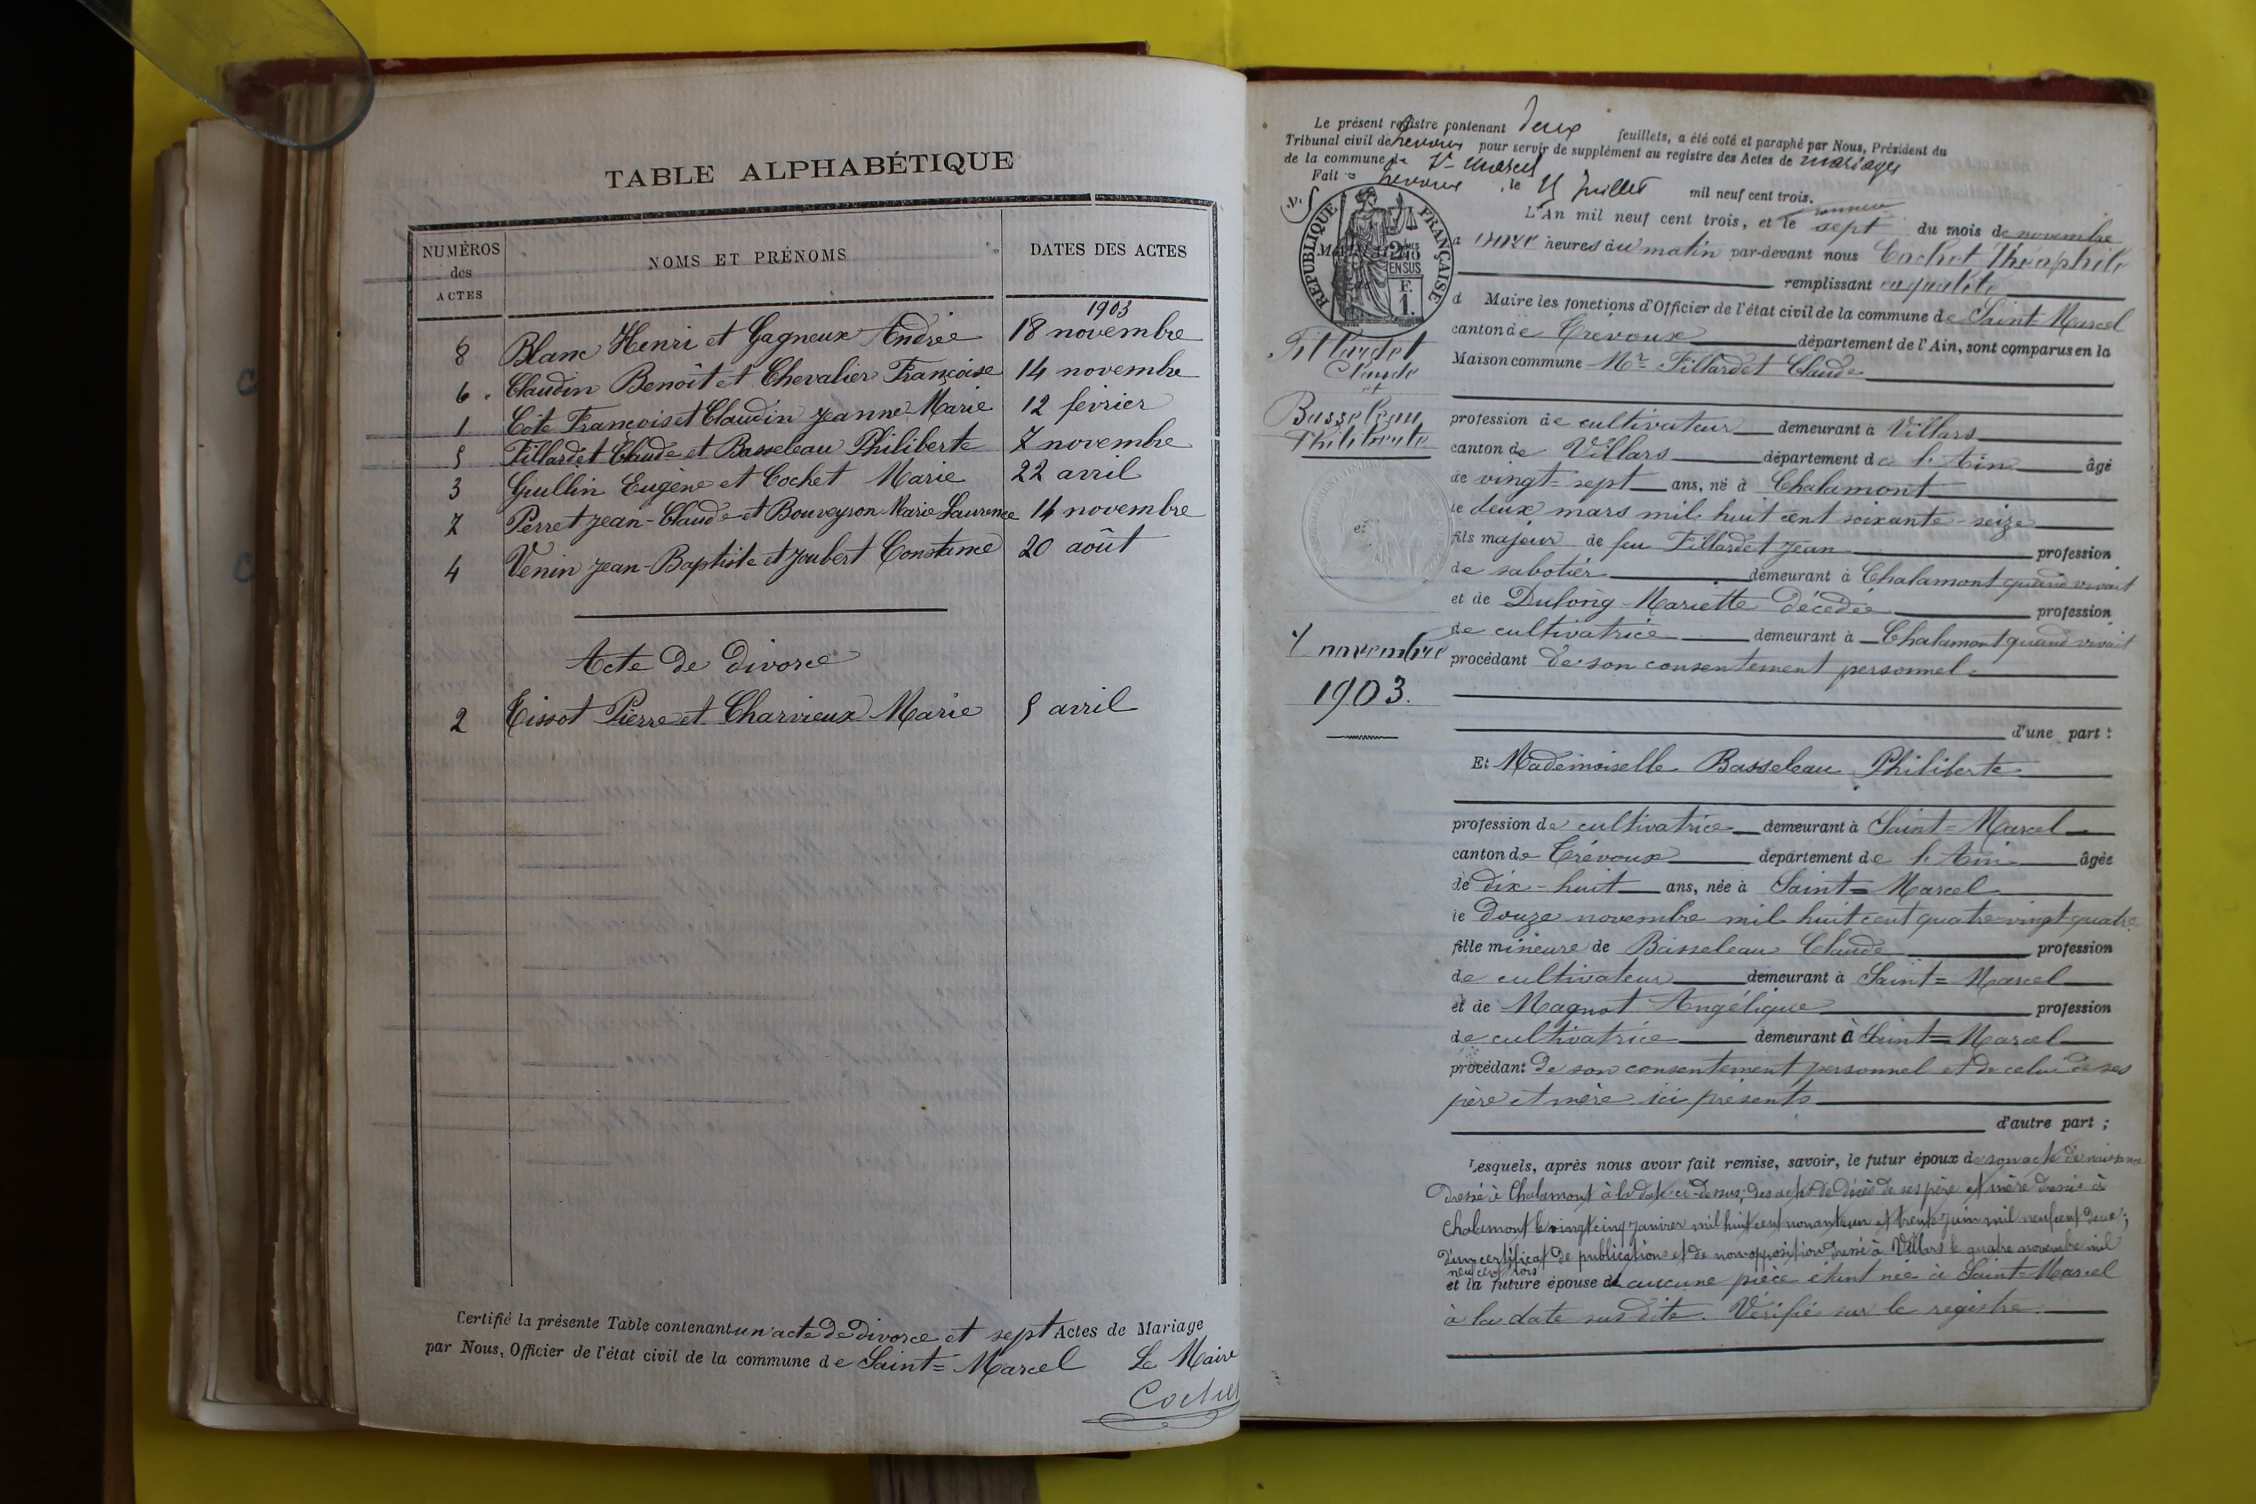 TABLE ALPHABÉTIQUE
NUMÉROS
des
ACTES
NOMS ET PRÉNOMS
DATES DES ACTES
1903
8 Blanc Henri et Gagneux Andrée 18 novembre
6 Claudin Benoît et Chevalier Françoise 14 novembre
1 Côte François et Claudin Jeanne Marie 12 février
5 Fillardet Claude et Basseleau Philiberte 7 novembre
3 Guillin Eugène et Cochet Marie 22 avril
7 Perret Jean-Claude et Bouveyron Marie Laurence 14 novembre
4 Venin Jean-Baptiste et Joubert Constance 20 août
Acte de divorce
2 Tissot Pierre et Charvieux Marie 5 avril
Certifié la présente Table contenant un acte de divorce et sept Actes de Mariage
par Nous, Officier de l'état civil de la commune de Saint=Marcel Le Maire
Cochet
Le présent registre contenant deux feuillets, a été coté et paraphé par Nous, Président du
Tribunal civil de Trevoux pour servir de supplément au registre des Actes de mariages
de la commune de St Marcel
Fait à Trevoux, le 15 Juillet mil neuf cent trois.
N° 5
RÉPUBLIQUE FRANÇAISE
2/10mes
EN SUS
F.
1.
L'An mil neuf cent trois, et le sept du mois de novembre
a onze heures du matin par-devant nous Cochet Théophile
remplissant en qualité
d Maire les fonctions d'Officier de l'état civil de la commune de Saint-Marcel
canton de Trévoux département de l'Ain, sont comparus en la
Maison commune Mr Fillardet Claude
Fillardet
Claude
et
Basseleau
Philiberte
profession de cultivateur demeurant à Villars
canton de Villars département de l'Ain âgé
de vingt-sept ans, né à Chalamont
le deux mars mil huit cent soixante-seize
fils majeur de feu Fillardet Jean profession
de sabotier demeurant à Chalamont quand vivait
et de Dulong Mariette décédée profession
de cultivatrice demeurant à Chalamont quand vivait
7 novembre
1903.
procédant de son consentement personnel
d'une part :
Et Mademoiselle Basseleau Philiberte
profession de cultivatrice demeurant à Saint=Marcel
canton de Trévoux département de l'Ain âgée
de dix-huit ans, née à Saint=Marcel
le douze novembre mil huit cent quatre-vingt-quatre
fille mineure de Basseleau Claude profession
de cultivateur demeurant à Saint=Marcel
et de Magnot Angélique profession
de cultivatrice demeurant à Saint=Marcel
procédant de son consentement personnel et de celui de ses
père et mère ici présents
d'autre part ;
Lesquels, après nous avoir fait remise, savoir, le futur époux de son acte de naissance
dressé à Chalamont à la date ci-dessus; des actes de décès de ses père et mère dressés à
Chalamont le vingt cinq janvier mil huit cent nonante un et trente juin mil neuf cent deux;
d'un certificat de publications et de non opposition dressé à Villars le quatre novembre mil
neuf cent trois
et la future épouse de aucune pièce étant née à Saint-Marcel
à la date sus dite. Vérifié sur le registre.